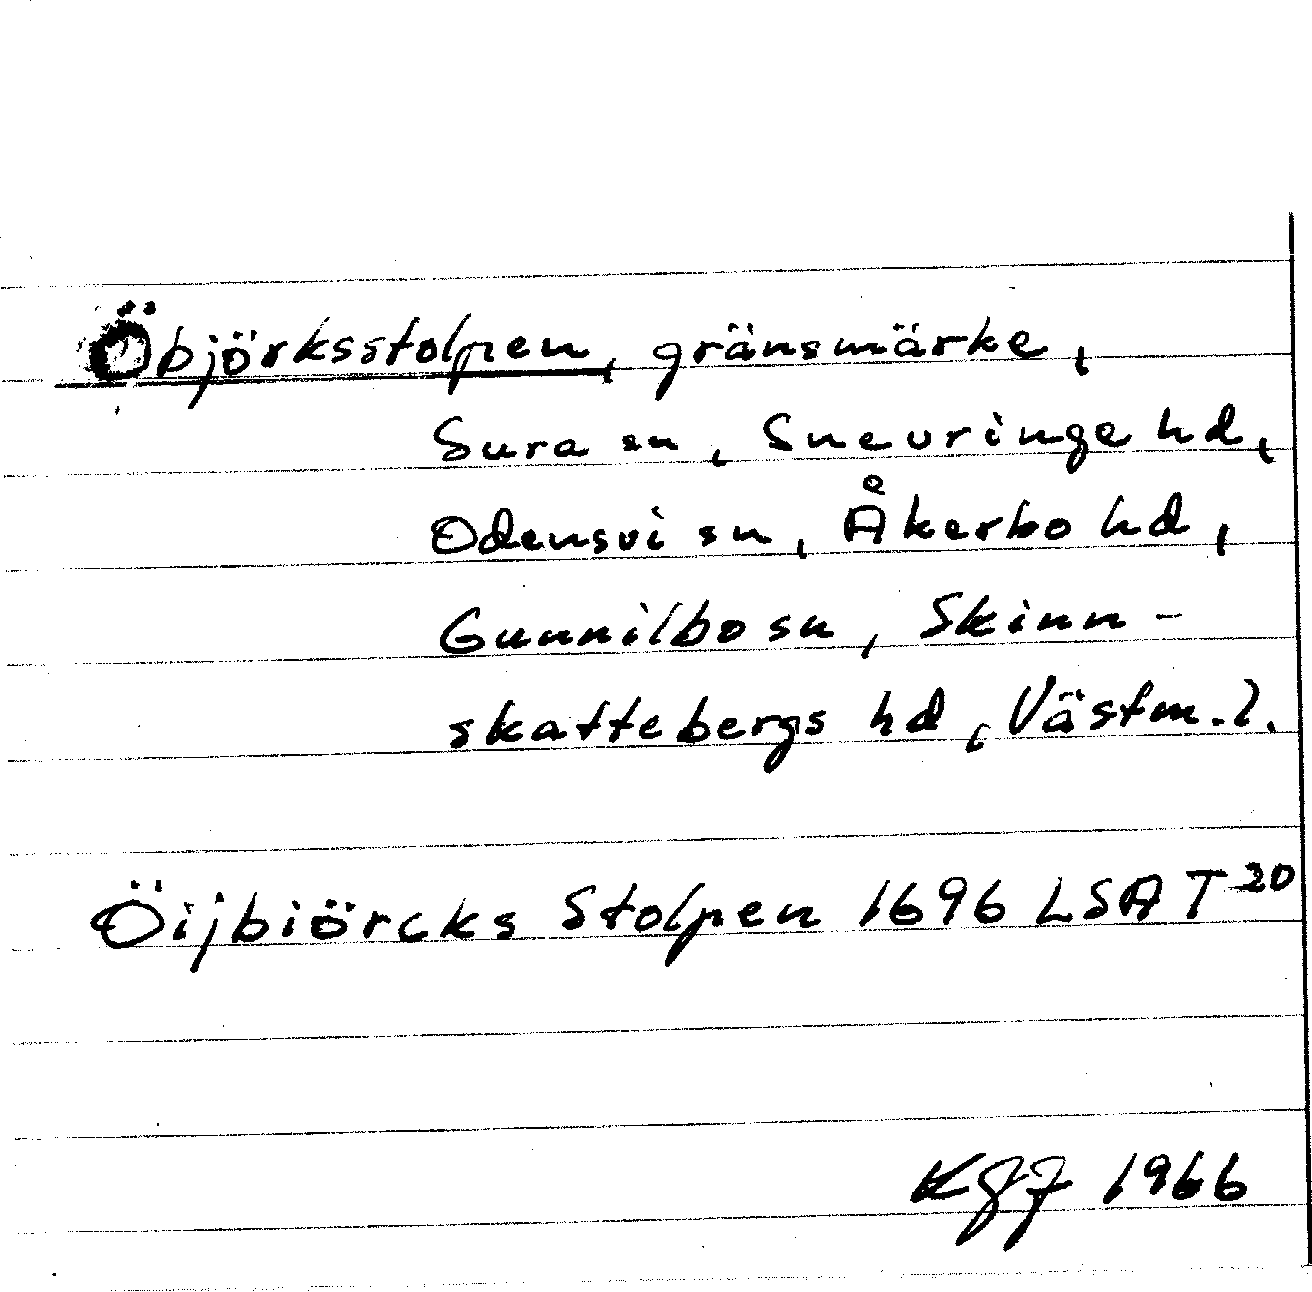 Öbjörksstolpen, gränsmärke,
Sura sn, Snevringe hd,
Odensvi sn, Åkerbo hd,
Gunnilbo sn, Skinn-
skattebergs hd, Västm. l.
Öijbiörcks Stolpen 1696 LSA T 20
1966